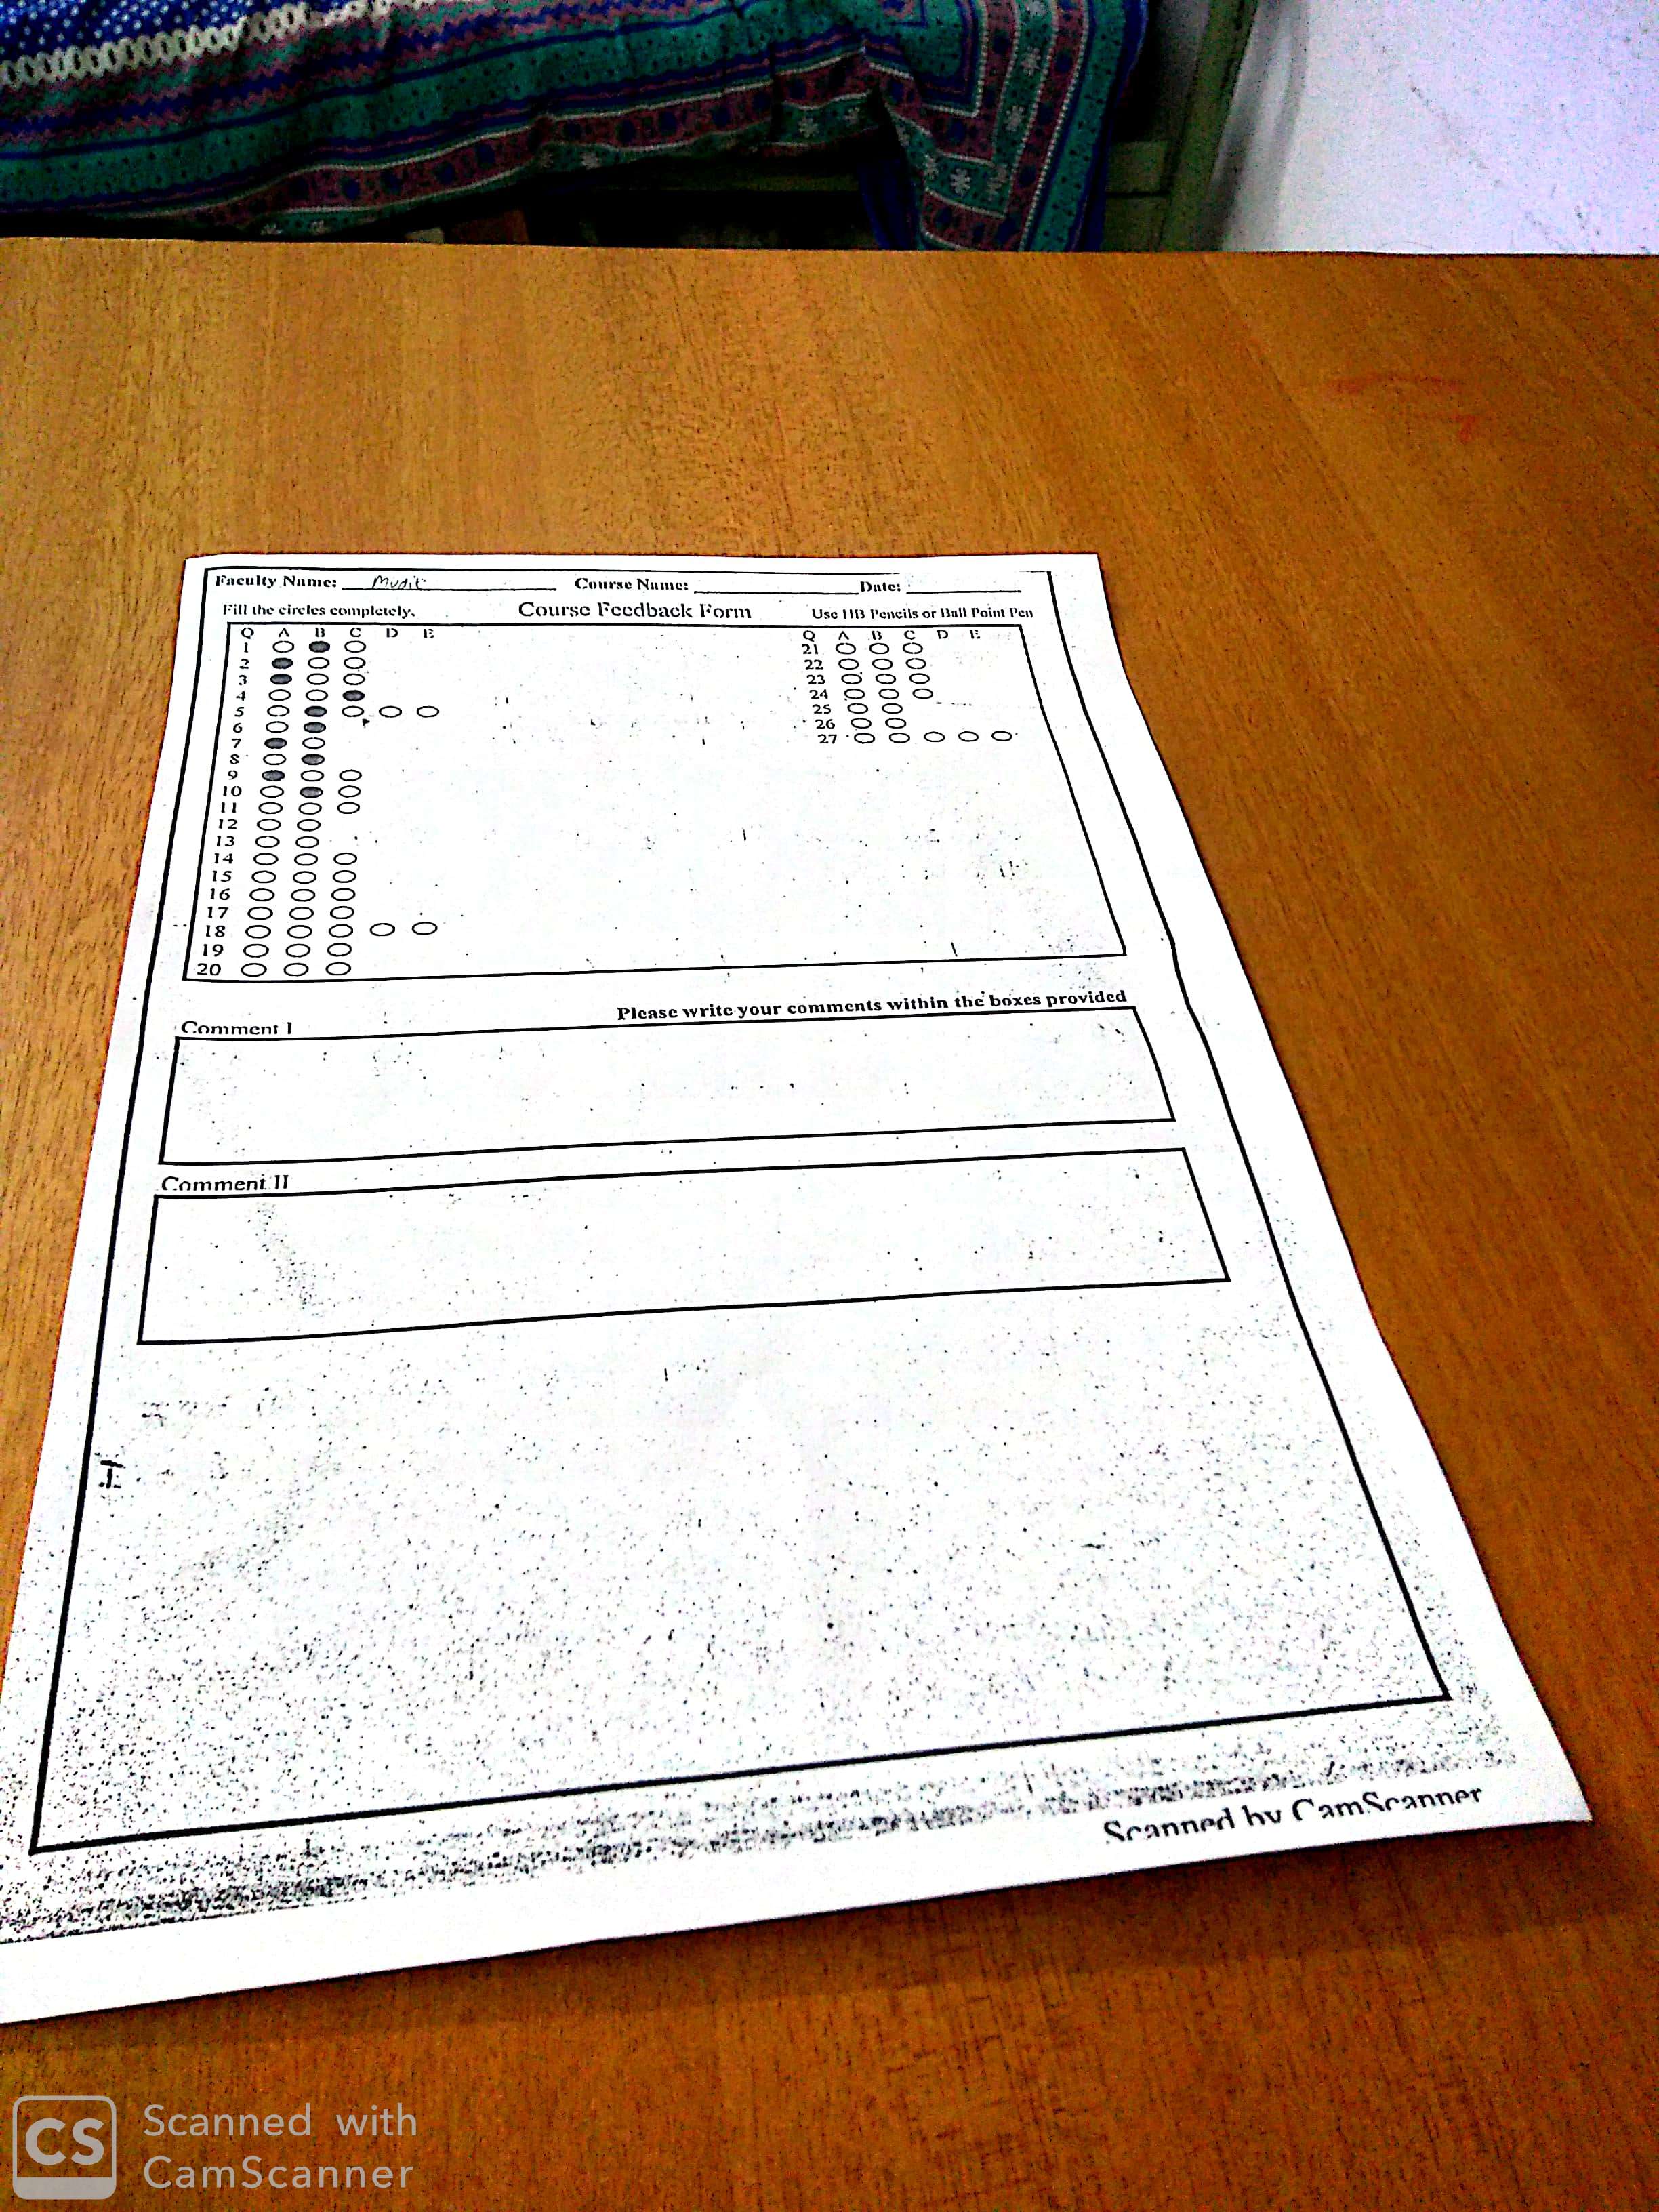 Faculty Name: Mudit Course Name: Date:
Fill the circles completely. Course Feedback Form Use HB Pencils or Ball Point Pen
Q A B C D E Q A B C D E
1 21
2 22
3 23
4 24
5 25
6 26
7 27
8
9
10
11
12
13
14
15
16
17
18
19
20
Please write your comments within the boxes provided
Comment I
Comment II
Scanned by CamScanner
CS Scanned with
CamScanner